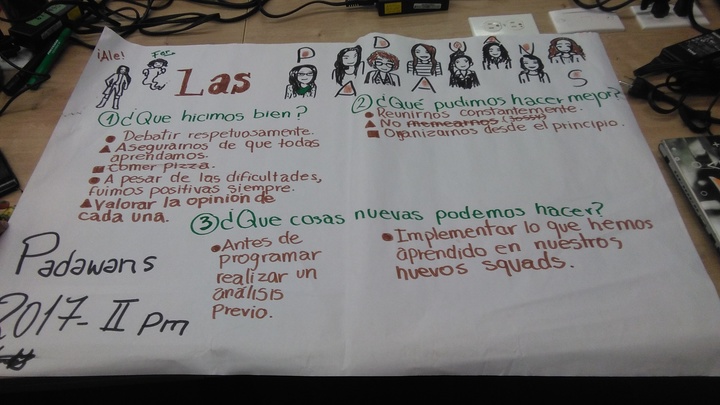 ¡Ale! Fer
Las PADAWANS
① ¿Que hicimos bien?
Debatir respetuosamente.
Asegurarnos de que todas
aprendamos.
Comer pizza.
A pesar de las dificultades,
fuimos positivas siempre.
Valorar la opinion de
cada una.
② ¿Qué pudimos hacer mejor?
Reunirnos constantemente.
No memearnos
Organizarnos desde el principio.
③ ¿Que cosas nuevas podemos hacer?
Antes de
programar
realizar un
análisis
Previo.
Implementar lo que hemos
aprendido en nuestros
nuevos squads.
Padawans
2017-II pm